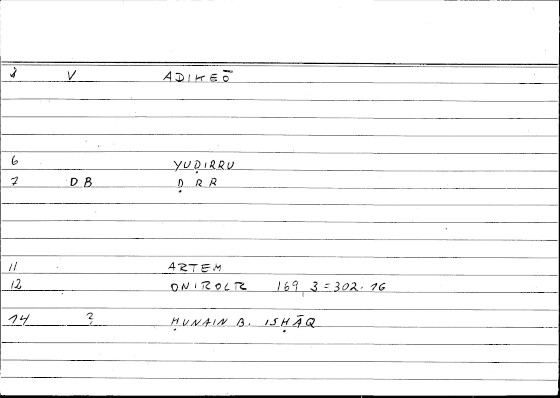 V ADIKEŌ
6 YUḌIRRU
7 DB ḌRR
11 ARTEM
12 ONIROCR 169, 3 = 302.16
14 ? ḤUNAIN B. ISḤĀQ